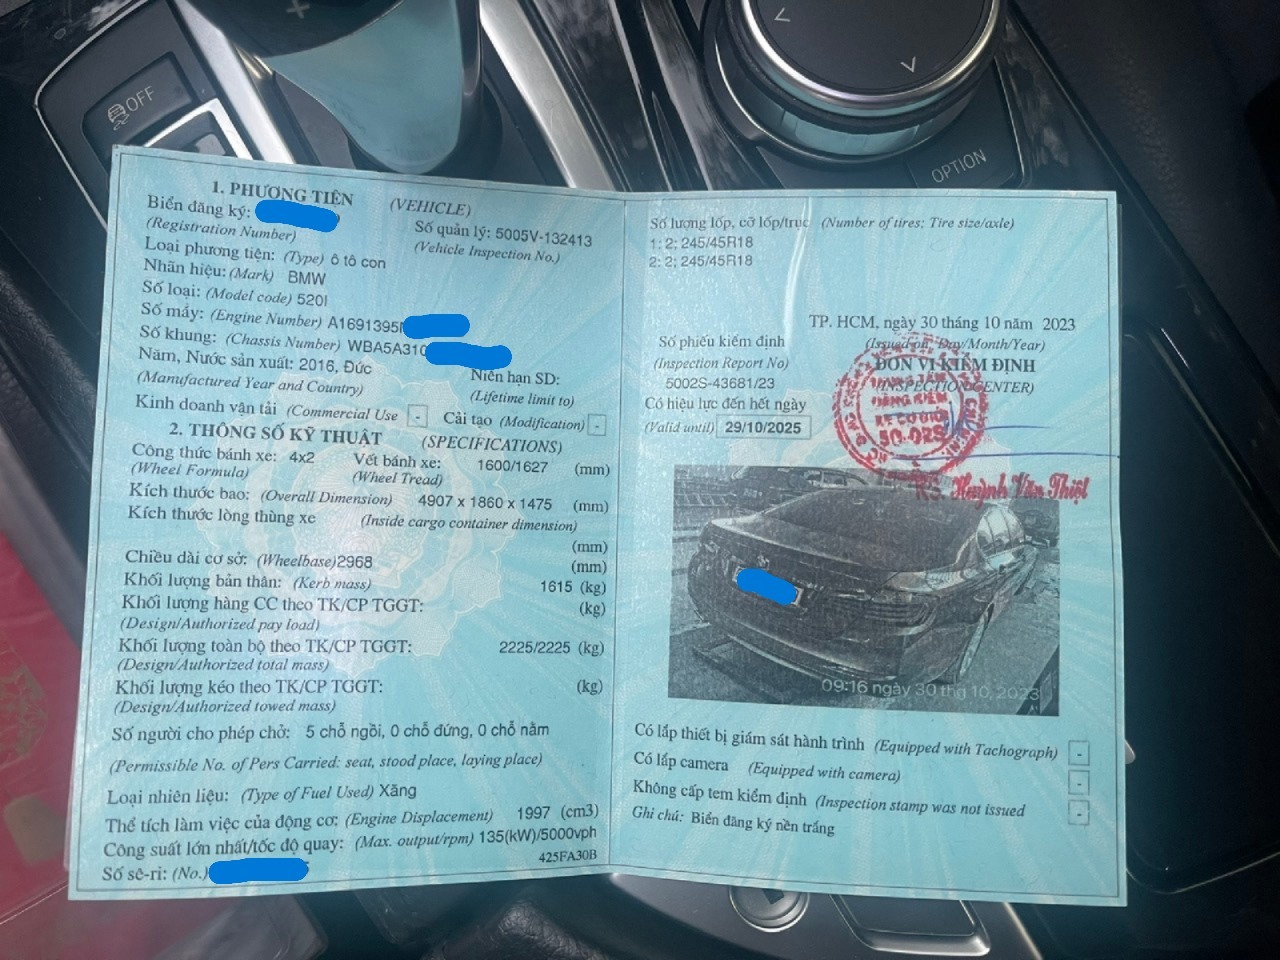 OFF
OPTION
1. PHƯƠNG TIỆN (VEHICLE)
Biển đăng ký:
(Registration Number)
Số quản lý: 5005V-132413
(Vehicle Inspection No.)
Loại phương tiện: (Type) ô tô con
Nhãn hiệu: (Mark) BMW
Số loại: (Model code) 520I
Số máy: (Engine Number) A1691395
Số khung: (Chassis Number) WBA5A310
Năm, Nước sản xuất: 2016, Đức
(Manufactured Year and Country)
Niên hạn SD:
(Lifetime limit to)
Kinh doanh vận tải (Commercial Use - Cải tạo (Modification) -
2. THÔNG SỐ KỸ THUẬT (SPECIFICATIONS)
Công thức bánh xe: 4x2
(Wheel Formula)
Vết bánh xe: 1600/1627 (mm)
(Wheel Tread)
Kích thước bao: (Overall Dimension) 4907 x 1860 x 1475 (mm)
Kích thước lòng thùng xe (Inside cargo container dimension)
(mm)
Chiều dài cơ sở: (Wheelbase)2968 (mm)
Khối lượng bản thân: (Kerb mass) 1615 (kg)
Khối lượng hàng CC theo TK/CP TGGT: (kg)
(Design/Authorized pay load)
Khối lượng toàn bộ theo TK/CP TGGT: 2225/2225 (kg)
(Design/Authorized total mass)
Khối lượng kéo theo TK/CP TGGT: (kg)
(Design/Authorized towed mass)
Số người cho phép chở: 5 chỗ ngồi, 0 chỗ đứng, 0 chỗ nằm
(Permissible No. of Pers Carried: seat, stood place, laying place)
Loại nhiên liệu: (Type of Fuel Used) Xăng
Thể tích làm việc của động cơ: (Engine Displacement) 1997 (cm3)
Công suất lớn nhất/tốc độ quay: (Max. output/rpm) 135(kW)/5000vph
425FA30B
Số sê-ri: (No.)
Số lượng lốp, cỡ lốp/trục (Number of tires; Tire size/axle)
1: 2; 245/45R18
2: 2; 245/45R18
TP. HCM, ngày 30 tháng 10 năm 2023
(Issued on: Day/Month/Year)
Số phiếu kiểm định
(Inspection Report No)
5002S-43681/23
ĐƠN VỊ KIỂM ĐỊNH
(INSPECTION CENTER)
ĐĂNG KIỂM
XE CƠ GIỚI
50-02S
Có hiệu lực đến hết ngày
(Valid until) 29/10/2025
KS. Huỳnh Văn Thiệt
09:16 ngày 30 thg 10, 2023
Có lắp thiết bị giám sát hành trình (Equipped with Tachograph) -
Có lắp camera (Equipped with camera) -
Không cấp tem kiểm định (Inspection stamp was not issued -
Ghi chú: Biển đăng ký nền trắng